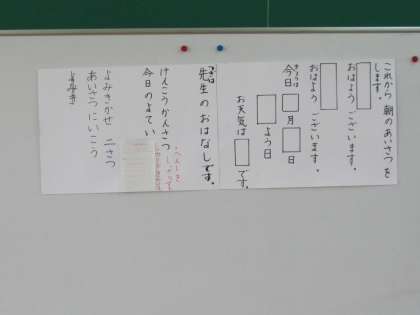 これから 朝のあいさつを
します。
おはよう ございます。
おはよう ございます。
きょうは
今日 月 日
よう日
お天気は です。
つぎは
先生 の おはなしです。
けんこうかんさつ
今日のよてい
よみきかせ 二さつ
あいさつにいこう